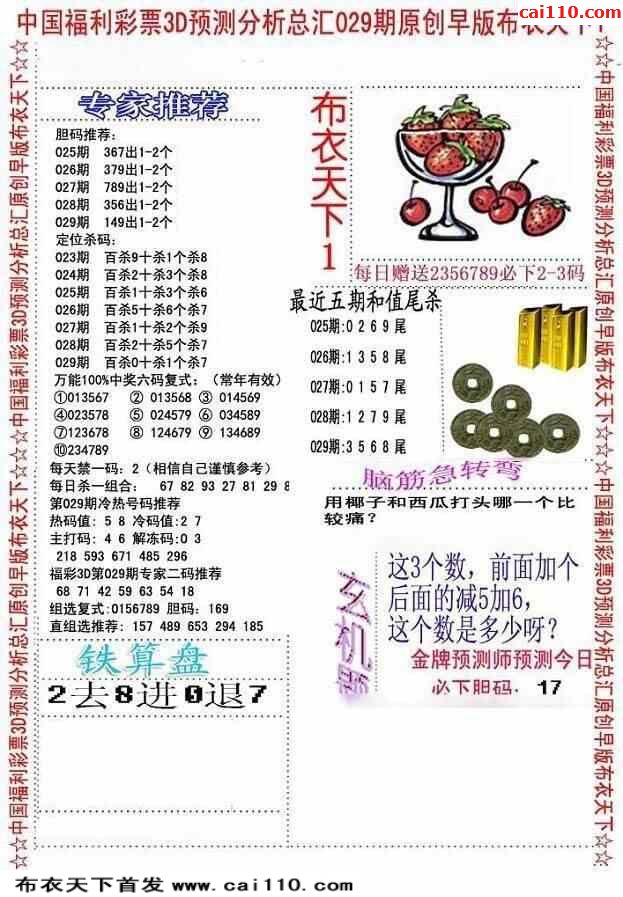 cai110.com
中国福利彩票3D预测分析总汇029期原创早版布衣天下
☆☆中国福利彩票3D预测分析总汇原创早版布衣天下☆☆☆中国福利彩票3D预测分析总汇原创早版布衣天下☆☆
专家推荐
胆码推荐:
025期 367出1-2个
026期 379出1-2个
027期 789出1-2个
028期 356出1-2个
029期 149出1-2个
定位杀码:
023期 百杀9十杀1个杀8
024期 百杀2十杀3个杀8
025期 百杀1十杀3个杀6
026期 百杀5十杀6个杀7
027期 百杀1十杀2个杀9
028期 百杀2十杀5个杀7
029期 百杀0十杀1个杀7
万能100%中奖六码复式:(常年有效)
①013567 ② 013568 ③ 014569
④023578 ⑤ 024579 ⑥ 034589
⑦123678 ⑧ 124679 ⑨ 134689
⑩234789
每天禁一码: 2（相信自己谨慎参考）
每日杀一组合: 67 82 93 27 81 29 8
第029期冷热号码推荐
热码值: 5 8 冷码值:2 7
主打码: 4 6 解冻码:0 3
218 593 671 485 296
福彩3D第029期专家二码推荐
68 71 42 59 63 54 18
组选复式:0156789 胆码: 169
直组选推荐: 157 489 653 294 185
铁算盘
2去8进0退7
布衣天下1
每日赠送2356789必下2-3码
最近五期和值尾杀
025期:0 2 6 9 尾
026期:1 3 5 8 尾
027期:0 1 5 7 尾
028期:1 2 7 9 尾
029期:3 5 6 8 尾
脑筋急转弯
用椰子和西瓜打头哪一个比
较痛?
玄机题
这3个数, 前面加个
后面的减5加6,
这个数是多少呀?
金牌预测师预测今日
必下胆码. 17
☆☆中国福利彩票3D预测分析总汇原创早版布衣天下☆☆☆中国福利彩票3D预测分析总汇原创早版布衣天下☆☆
布衣天下首发 www.cai110.com